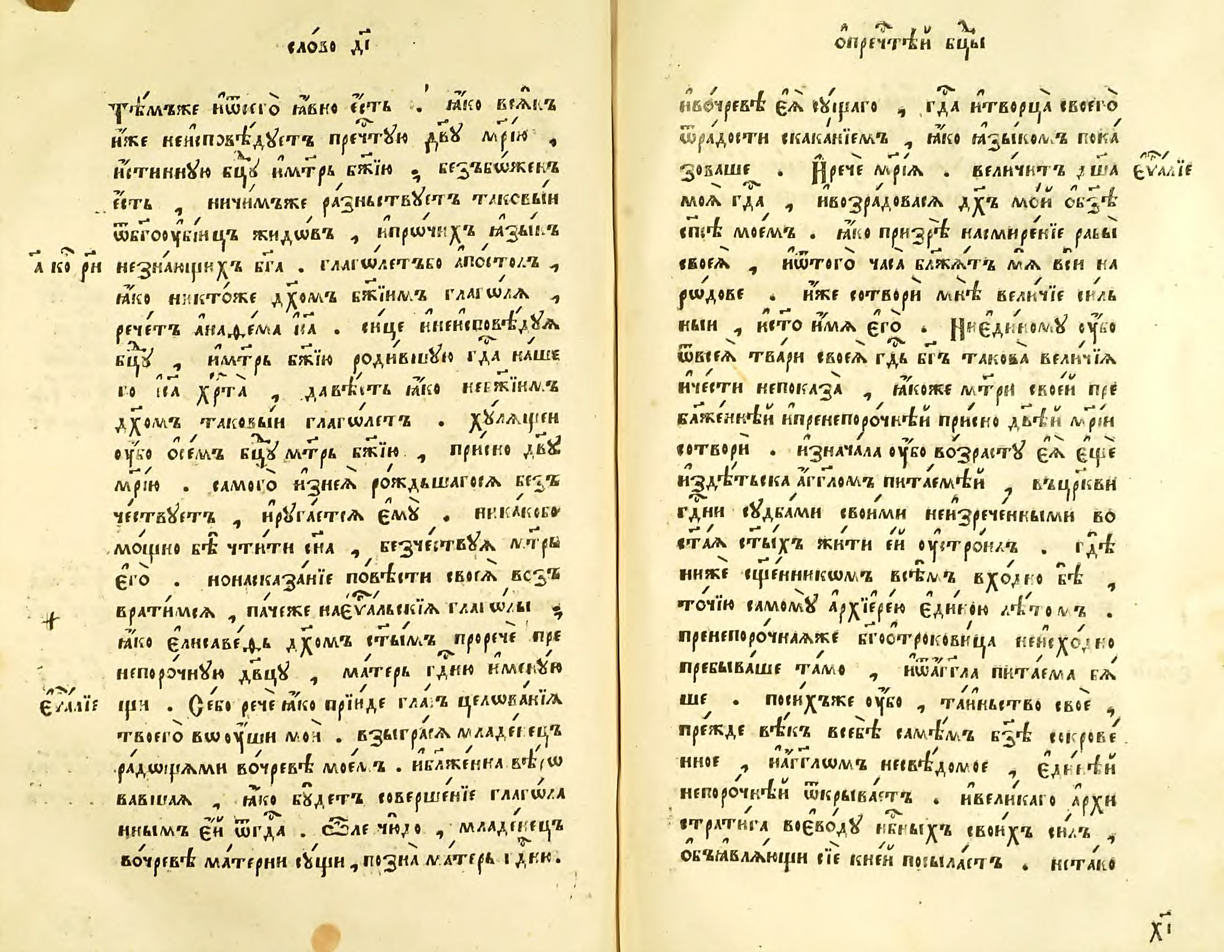 сло́во д҃і
Тѣ́мъже ѿсего̀ ꙗ҆́вно є҆́сть . ꙗ҆́ко всѧ́къ
и҆́же неи҆сповѣ́дꙋетъ преч҃тꙋю дв҃ꙋ мр҃і́ю ,
и҆́стиннꙋю бц҃ꙋ и҆мт҃рь бж҃їю , безъбо́женъ
є҆́сть , ничи́мъже ра́зньствꙋетъ таковы́и
ѿбг҃оꙋбі́ицъ жидѡ́въ , и҆про́чихъ ꙗ҆зы́къ
а҃ ко рн҃
незна́ющихъ бг҃а . глаго́летъбо а҆по́столъ ,
ꙗ҆́ко никто́же дх҃омъ бж҃їимъ глаго́лѧ ,
рече́тъ а҆на́ѳема і҆с҃а . си́це и҆неи҆сповѣ́дꙋѧ
бц҃ꙋ , и҆мт҃рь бж҃їю роди́вшꙋю гд҃а на́ше
го і҆с҃а хр҃та̀ , да вѣ́сть ꙗ҆́ко небж҃їимъ
дх҃омъ таковы́и глаго́летъ . хꙋ́лѧщеи
ᲂу҆́бо ѻ҆се́мъ бц҃ꙋ мт҃рь бж҃їю , при́сно дв҃ꙋ
мр҃і́ю . самого̀ и҆знеѧ̀ ро́ждьшагосѧ безъ
че́ствꙋетъ , и҆рꙋга́етсѧ є҆мꙋ̀ . ника́кобо
мо́щно бѣ̀ чти́ти сн҃а , безче́ствꙋѧ мт҃рь
є҆го̀ . нонасказа́нїе по́вѣсти своеѧ̀ возъ
врати́мсѧ , па́чеже наєѵ҃а́льскїѧ глаго́лы ,
ꙗ҆́ко є҆лисаве́ѳь дх҃омъ ст҃ы́мъ проречѐ пре
непоро́чнꙋю дв҃цꙋ , ма́терь гд҃ню и҆менꙋ́ю
є҆ѵⷢ҇а́лїе
щи . Се́бо речѐ ꙗ҆́ко прїи́де гла́съ целова́нїѧ
твоего̀ воᲂу҆́ши мои̑ . взыгра́сѧ младе́нецъ
ра́дощами во́чревѣ мое́мъ . и҆блаже́нна вѣ́ро
вавшаѧ , ꙗ҆́ко бꙋ́детъ соверше́нїе глаго́ла
ннымъ є҆́й ѿгд҃а . Ѽле чю́до , младе́нецъ
во́чревѣ ма́терни сꙋ́щи , позна̀ ма́терь гд҃ню .
ѻ҆преч҃тѣй бц҃ы
и҆во́чревѣ є҆ѧ̀ сꙋ́щаго , гд҃а и҆творца̀ своего̀
ѿра́дости скака́нїемъ , ꙗ҆́ко ꙗ҆зы́комъ пока́
зоваше . И҆речѐ мр҃і́ѧ . величи́тъ дш҃а
є҆ѵⷢ҇а́лїе
моѧ̀ гд҃а , и҆возра́довасѧ дх҃ъ мо́й ѻ҆бз҃ѣ
сп҃сѣ мое́мъ . ꙗ҆́ко призрѣ̀ насмире́нїе рабы̀
своеѧ̀ , и҆ѿтого̀ часа̀ бл҃жа́тъ мѧ̀ вси̑ на
ро́дове . и҆́же сотвори̑ мнѣ̀ вели́чїе си́ль
ныи , и҆ст҃о и҆́мѧ є҆го̀ . Ниеди́номꙋ ᲂу҆́бо
ѿвсеѧ̀ тва́ри своеѧ̀ гд҃ь бг҃ъ такова̀ вели́чїѧ
и҆че́сти непоказа̀ , ꙗ҆́коже мт҃ри свое́й пре
блаже́ннѣй и҆пренепоро́чнѣй при́сно дв҃ѣй мр҃і́и
сотвори̑ . и҆знача́ла ᲂу҆́бо во́зрастꙋ є҆ѧ̀ є҆щѐ
и҆здѣ́тьска а҆́гг҃ломъ пита́емѣй , въцр҃кви
гд҃ни сꙋдба́ми свои́ми неи҆зрече́нными во
ст҃а́ѧ ст҃ы́хъ жи́ти є҆́й ᲂу҆стро́илъ . гдѣ̀
нижѐ сщ҃е́нникѡмъ всѣ̑мъ вхо́дно бѣ̀ ,
то́чїю самомꙋ̀ а҆рхїере́ю є҆ди́ною лѣ́томъ .
пренепоро́чнаѧже бг҃оотрокови́ца неи҆схо́дно
пребыва́ше та́мо , и҆ѿа҆́гг҃ла пита́ема бѧ́
ше . поси́хъже ᲂу҆́бо , та́иньство своѐ ,
пре́жде вѣ́къ всебѣ̀ самѣ́мъ бз҃ѣ сокрове́
нное , и҆а҆́гг҃лѡмъ несвѣ́домое , є҆ди́нѣй
непоро́чнѣй ѿкрыва́етъ . и҆вели́каго а҆рхи
страти́га воево́дꙋ нб҃ныхъ свои́хъ си́лъ ,
ѻ҆бъꙗ҆влѧ́ющи сїѐ кне́й посыла́етъ . и҆ста́ко
х҃і